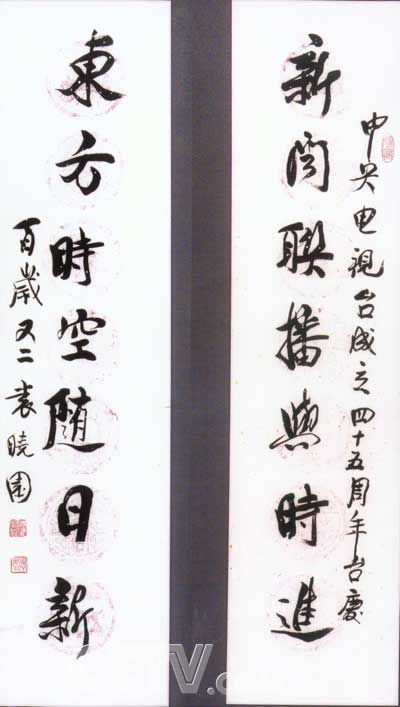 中央电視台成立四十五周年台慶
新聞聯播與時進
東方時空随日新
百歲又二袁曉園